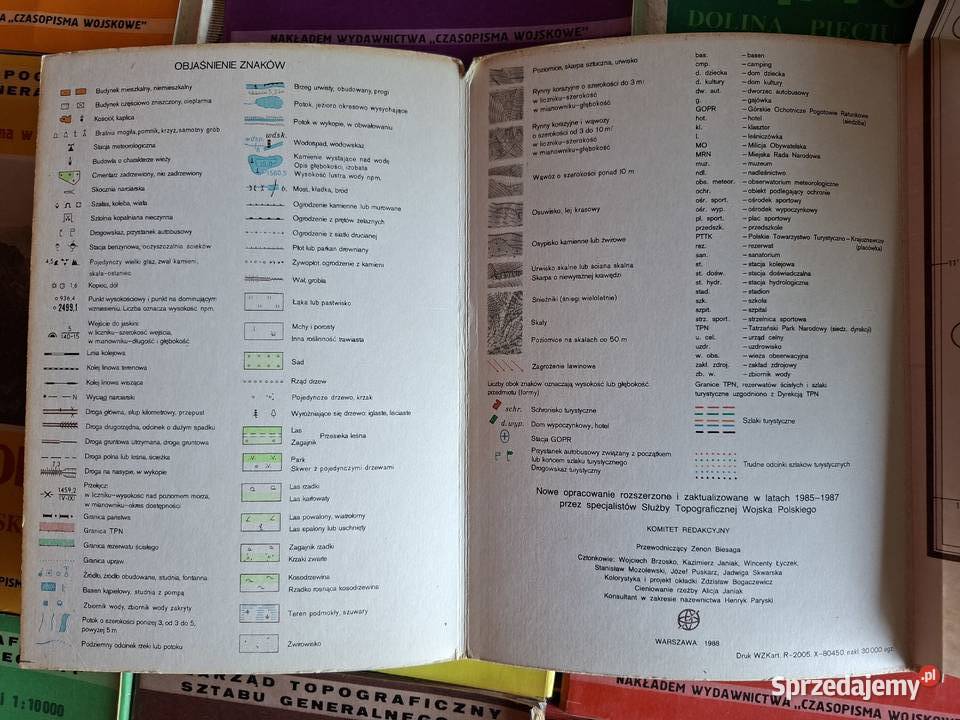 A „CZASOPISMA WOJSKOWE"
NAKŁADEM WYDAWNICTWA „CZASOPISMA WOJSKOWE"
DOLINA PIĘCIU
OBJAŚNIENIE ZNAKÓW
Budynek mieszkalny, niemieszkalny
Budynek częściowo zniszczony, cieplarnia
Kościół, kaplica
Bratnia mogiła, pomnik, krzyż, samotny grób
Stacja meteorologiczna
Budowla o charakterze wieży
Cmentarz zadrzewiony, nie zadrzewiony
Skocznia narciarska
Szałas, koleba, wiata
Sztolnia kopalniana nieczynna
Drogowskaz, przystanek autobusowy
Stacja benzynowa, oczyszczalnia ścieków
4,5
Pojedynczy wielki głaz, zwał kamieni,
skała-ostaniec
1,6 Kopiec, dół
936,4
2499,1
Punkt wysokościowy i punkt na dominującym
wzniesieniu. Liczba oznacza wysokość npm.
5
140-15
Wejście do jaskini:
w liczniku-szerokość wejścia,
w mianowniku-długość i głębokość
Linia kolejowa
Kolej linowa terenowa
Kolej linowa wisząca
N Wyciąg narciarski
Droga główna, słup kilometrowy, przepust
Droga drugorzędna, odcinek o dużym spadku
Droga gruntowa utrzymana, droga gruntowa
Droga polna lub leśna, ścieżka
Droga na nasypie, w wykopie
1459,2
IV-IX
Przełęcz:
w liczniku-wysokość nad poziomem morza,
w mianowniku-okres dostępności
Granica państwa
Granica TPN
Granica rezerwatu ścisłego
Granica upraw
Źródło, źródło obudowane, studnia, fontanna
Basen kąpielowy, studnia z pompą
Zbiornik wody, zbiornik wody zakryty
Potok o szerokości poniżej 3, od 3 do 5,
powyżej 5 m
Podziemny odcinek rzeki lub potoku
Brzeg urwisty, obudowany, progi
Potok, jezioro okresowo wysychające
Potok w wykopie, w obwałowaniu
wdsp. wdsk.
Wodospad, wodowskaz
Kamienie wystające nad wodę
Opis głębokości, izobata
Wysokość lustra wody npm.
Most, kładka, bród
Ogrodzenie kamienne lub murowane
Ogrodzenie z prętów żelaznych
Ogrodzenie z siatki drucianej
Płot lub parkan drewniany
Żywopłot, ogrodzenie z kamieni
Wał, grobla
Łąka lub pastwisko
Mchy i porosty
Inna roślinność trawiasta
Sad
Rząd drzew
Pojedyncze drzewo, krzak
Wyróżniające się drzewo: iglaste, liściaste
Las
Zagajnik
Przesieka leśna
Park
Skwer z pojedynczymi drzewami
Las rzadki
Las karłowaty
Las powalony, wiatrołomy
Las spalony lub uschnięty
Zagajnik rzadki
Krzaki zwarte
Kosodrzewina
Rzadko rosnąca kosodrzewina
Teren podmokły, szuwary
Żwirowisko
Poziomice, skarpa sztuczna, urwisko
Rynny korazyjne o szerokości do 3 m:
w liczniku-szerokość
w mianowniku-głębokość
Rynny korazyjne i wąwozy
o szerokości od 3 do 10 m:
w liczniku-szerokość
w mianowniku-głębokość
Wąwóz o szerokości ponad 10 m
Osuwisko, lej krasowy
Osypisko kamienne lub żwirowe
Urwisko skalne lub ściana skalna
Skarpa o niewyraźnej krawędzi
Śnieżniki (śniegi wieloletnie)
Skały
Poziomice na skałach co 50 m
Zagrożenie lawinowe
Liczby obok znaków oznaczają wysokość lub głębokość
przedmiotu (formy)
schr. Schronisko turystyczne
d. wyp. Dom wypoczynkowy, hotel
Stacja GOPR
Przystanek autobusowy związany z początkiem
lub końcem szlaku turystycznego
Drogowskaz turystyczny
bas. – basen
cmp. – camping
d. dziecka – dom dziecka
d. kultury – dom kultury
dw. aut. – dworzec autobusowy
g. – gajówka
GOPR – Górskie Ochotnicze Pogotowie Ratunkowe
(siedziba)
hot. – hotel
kl. – klasztor
l. – leśniczówka
MO – Milicja Obywatelska
MRN – Miejska Rada Narodowa
muz. – muzeum
ndl. – nadleśnictwo
obs. meteor. – obserwatorium meteorologiczne
ochr. – obiekt podlegający ochronie
ośr. sport. – ośrodek sportowy
ośr. wyp. – ośrodek wypoczynkowy
pl. sport. – plac sportowy
przedszk. – przedszkole
PTTK – Polskie Towarzystwo Turystyczno-Krajoznawcze
(placówka)
rez. – rezerwat
san. – sanatorium
st. – stacja kolejowa
st. dośw. – stacja doświadczalna
st. hydr. – stacja hydrologiczna
stad. – stadion
szk. – szkoła
szpit. – szpital
strz. sport. – strzelnica sportowa
TPN – Tatrzański Park Narodowy (siedz. dyrekcji)
u. cel. – urząd celny
uzdr. – uzdrowisko
w. obs. – wieża obserwacyjna
zakł. zdroj. – zakład zdrojowy
zb. w. – zbiornik wody
Granice TPN, rezerwatów ścisłych i szlaki
turystyczne uzgodniono z Dyrekcją TPN
Szlaki turystyczne
Trudne odcinki szlaków turystycznych
Nowe opracowanie rozszerzone i zaktualizowane w latach 1985–1987
przez specjalistów Służby Topograficznej Wojska Polskiego
KOMITET REDAKCYJNY
Przewodniczący Zenon Biesaga
Członkowie: Wojciech Brzosko, Kazimierz Janiak, Wincenty Łyczek,
Stanisław Mozolewski, Józef Puskarz, Jadwiga Skwarska
Kolorystyka i projekt okładki Zdzisław Bogaczewicz
Cieniowanie rzeźby Alicja Janiak
Konsultant w zakresie nazewnictwa Henryk Paryski
WARSZAWA 1988
Druk WZKart. R-2005. X-80450. nakł. 30 000 egz.
1:10000
ZARZĄD TOPOGRAFICZNY
SZTABU GENERALNEGO
NAKŁADEM WYDAWNICTWA „CZASOPISMA WOJSKOWE"
Sprzedajemy.pl